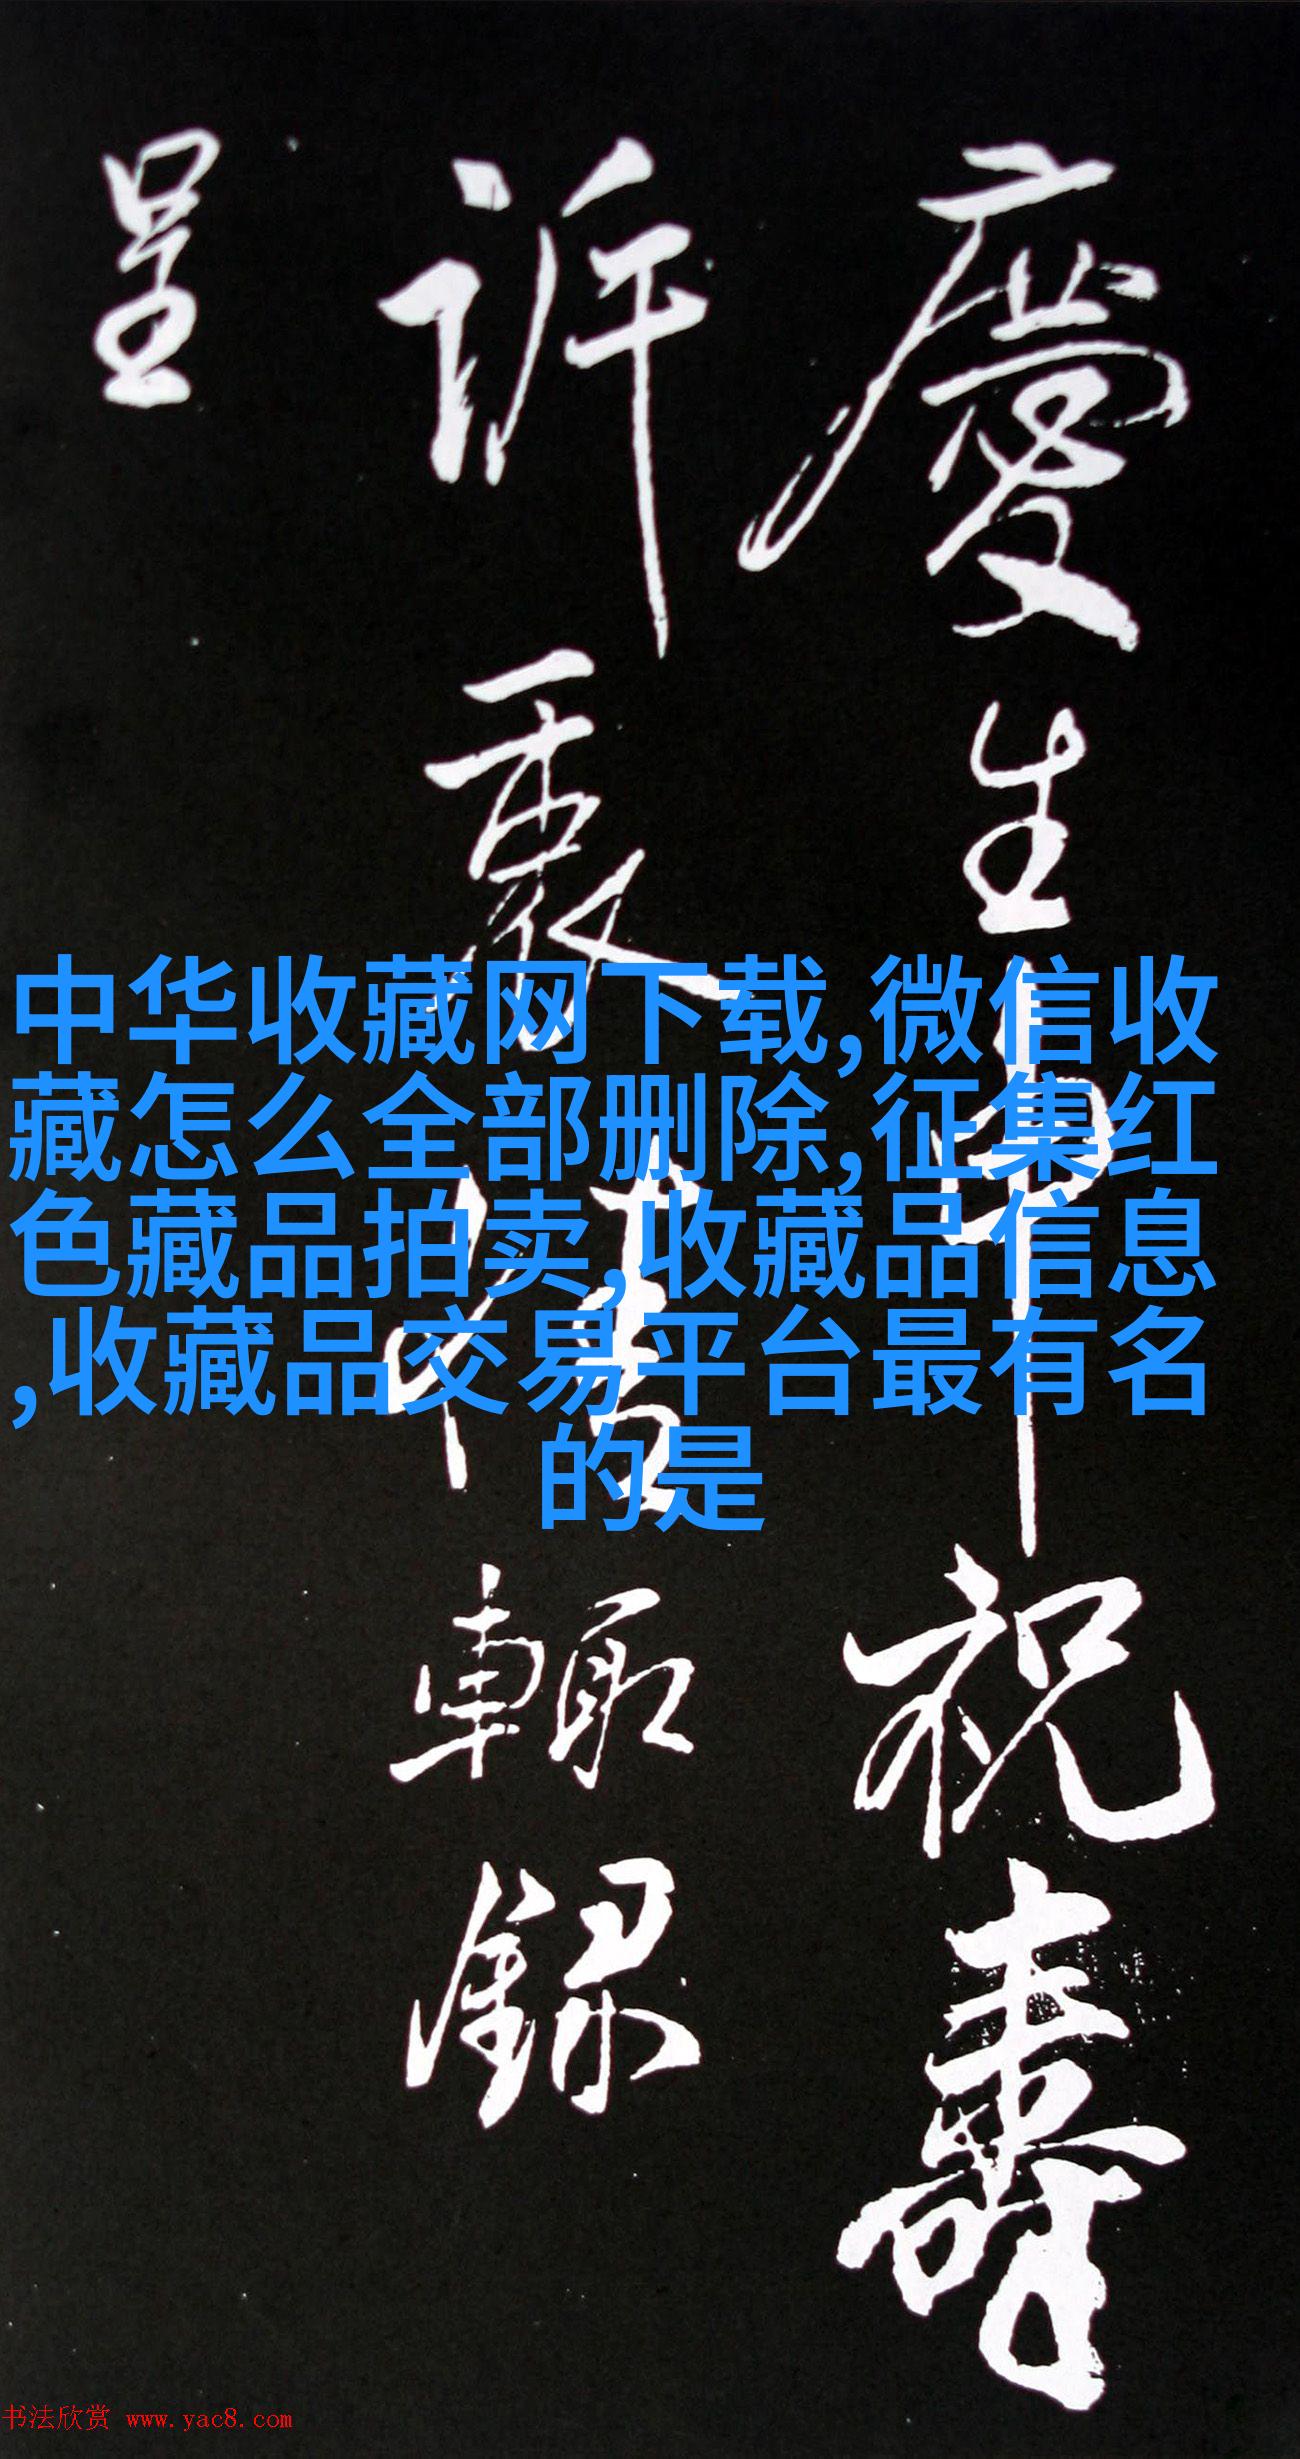 慶生申祝壽
訴衷情輙録
呈
中华收藏网下载,微信收
藏怎么全部删除,征集红
色藏品拍卖,收藏品信息
,收藏品交易平台最有名
的是
书法欣赏 www.yac8.com